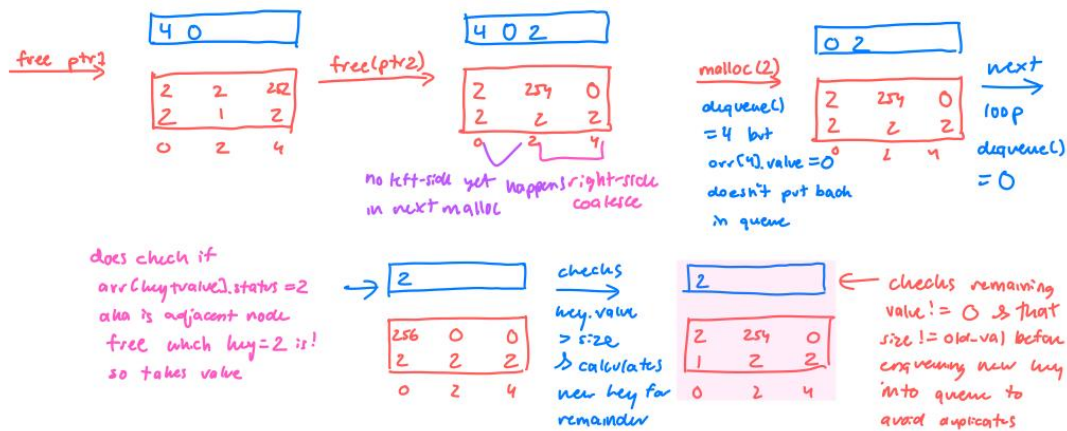 free ptr1
4 0
2 2 252
2 1 2
0 2 4
free(ptr2)
4 0 2
2 254 0
2 2 2
0 2 4
no left-side yet happens
in next malloc
right-side
coalesce
malloc(2)
dequeue()
= 4 but
arr[4].value = 0
doesn't put back
in queue
0 2
2 254 0
2 2 2
0 2 4
next
loop
dequeue()
= 0
does check if
arr[key+value].status = 2
aka is adjacent node
free which key=2 is!
so takes value
2
256 0 0
2 2 2
0 2 4
checks
key.value
> size
& calculates
new key for
remainder
2
2 254 0
1 2 2
0 2 4
checks remaining
value != 0 & that
size != old_val before
enqueuing new key
into queue to
avoid duplicates